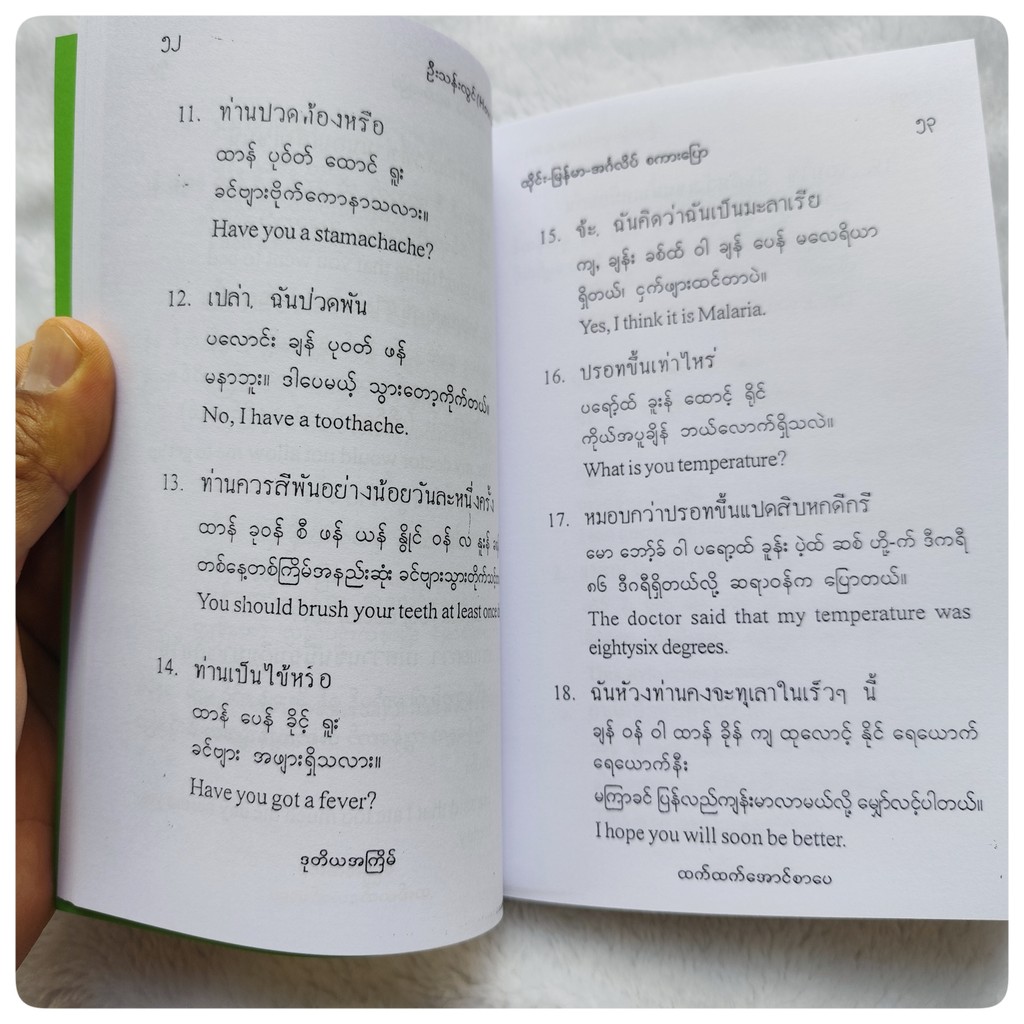 ၅၂
ဦးသန်းလွင်
11. ท่านปวดท้องหรือ
ထာန် ပုဝ်တ် ထောင် ရူး
ခင်ဗျားဗိုက်ကောနာသလား။
Have you a stamachache?
12. เปล่า, ฉันปวดฟัน
ပလောင်း ချန် ပုဝတ် ဖန်
မနာဘူး။ ဒါပေမယ့် သွားတော့ကိုက်တယ်။
No, I have a toothache.
13. ท่านควรสีฟันอย่างน้อยวันละหนึ่งครั้ง
ထာန် ခုဝန် စီ ဖန် ယန် နွိုင် ဝန် လ နူးန်
တစ်နေ့တစ်ကြိမ်အနည်းဆုံး ခင်ဗျားသွားတိုက်သင့်
You should brush your teeth at least once
14. ท่านเป็นไข้หรือ
ထာန် ပေန် ခိုင့် ရူး
ခင်ဗျား အဖျားရှိသလား။
Have you got a fever?
ဒုတိယအကြိမ်
ထိုင်း-မြန်မာ-အင်္ဂလိပ် စကားပြော
၅၃
15. จ้ะ, ฉันคิดว่าฉันเป็นมะลาเรีย
ကျ, ချန်း ခစ်ထ် ဝါ ချန် ပေန် မလေရိယာ
ရှိတယ်၊ ငှက်ဖျားထင်တာပဲ။
Yes, I think it is Malaria.
16. ปรอทขึ้นเท่าไหร่
ပရော့ထ် ခူးန် ထောင့် ရိုင်
ကိုယ်အပူချိန် ဘယ်လောက်ရှိသလဲ။
What is you temperature?
17. หมอบกว่าปรอทขึ้นแปดสิบหกดีกรี
မော ဘော့်ခ် ဝါ ပရော့ထ် ခူန်း ပဲ့ထ် ဆစ် ဟို့-က် ဒီကရီ
၈၆ ဒီဂရီရှိတယ်လို့ ဆရာဝန်က ပြောတယ်။
The doctor said that my temperature was
eightysix degrees.
18. ฉันหวังท่านคงจะทุเลาในเร็วๆ นี้
ချန် ဝန် ဝါ ထာန် ခိုန် ကျ ထုလောင့် နိုင် ရေယောက်
ရေယောက်နီး
မကြာခင် ပြန်လည်ကျန်းမာလာမယ်လို့ မျှော်လင့်ပါတယ်။
I hope you will soon be better.
ထက်ထက်အောင်စာပေ